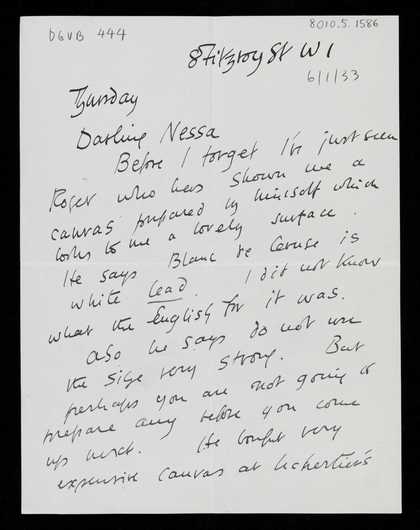 DGVB 444
8010.5.1586
8 Fitzroy St W1
6/1/33
Thursday
Darling Nessa
Before I forget I've just seen
Roger who has shown me a
canvas prepared by himself which
looks to me a lovely surface.
He says Blanc de Ceruse is
white lead. I did not know
what the English for it was.
Also he says do not use
the size very strong. But
perhaps you are not going to
prepare any before you come
up next. He bought very
expensive canvas at Lechertier's